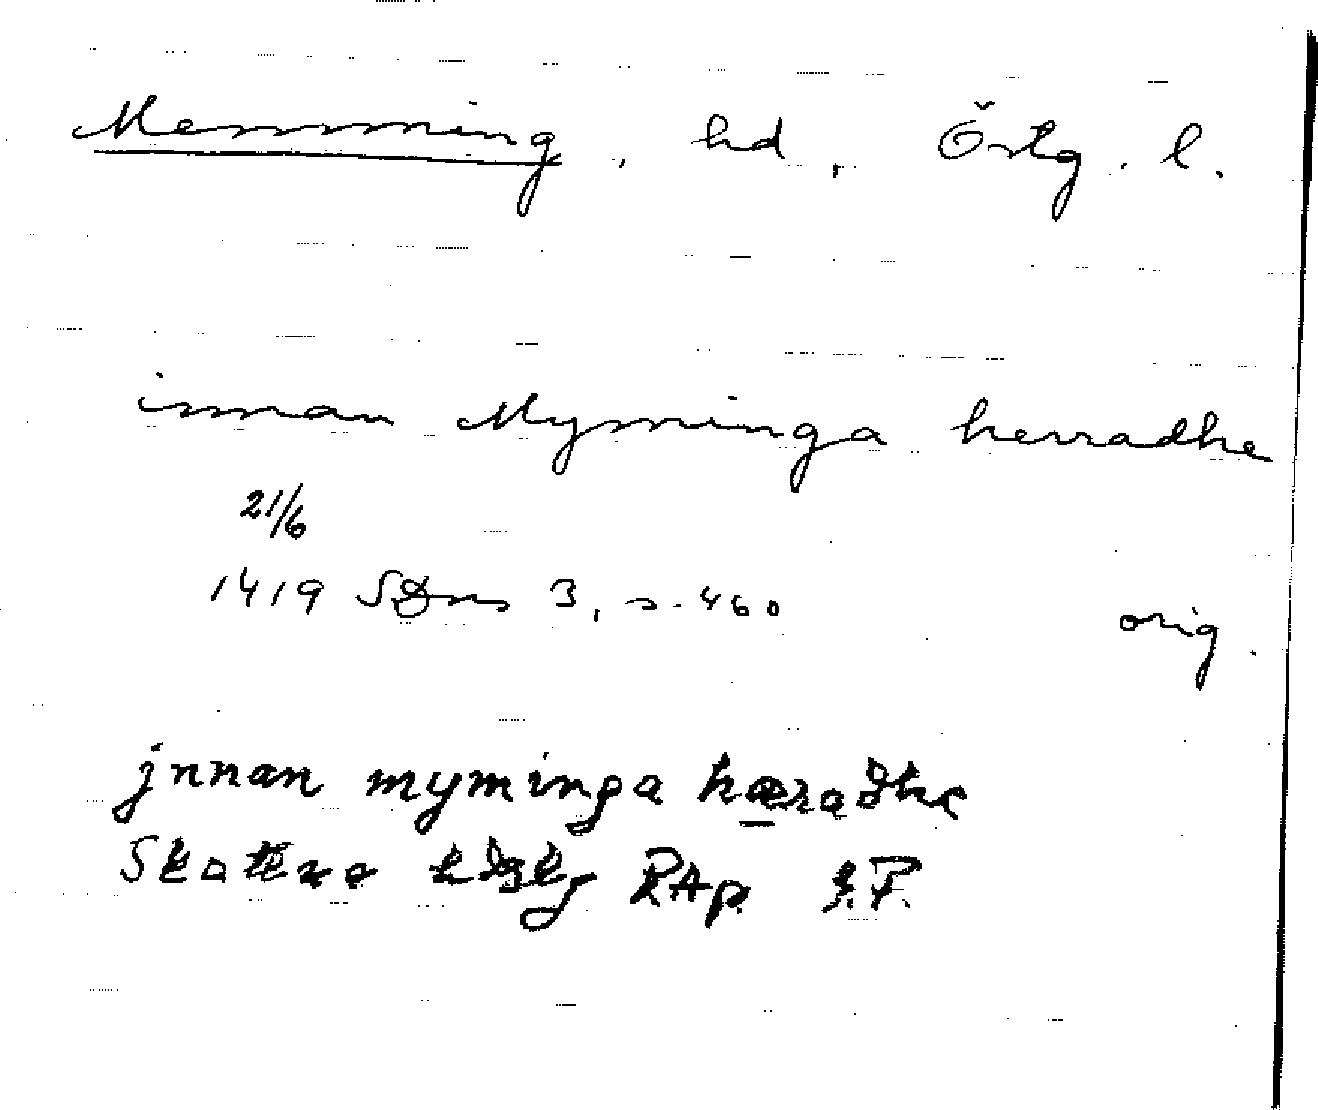 Memming, hd, Östg. l.
innan Myminga herradhe
21/6
1419 SDns 3, s. 460
orig.
jnnan myminga hæradhe
RAp.